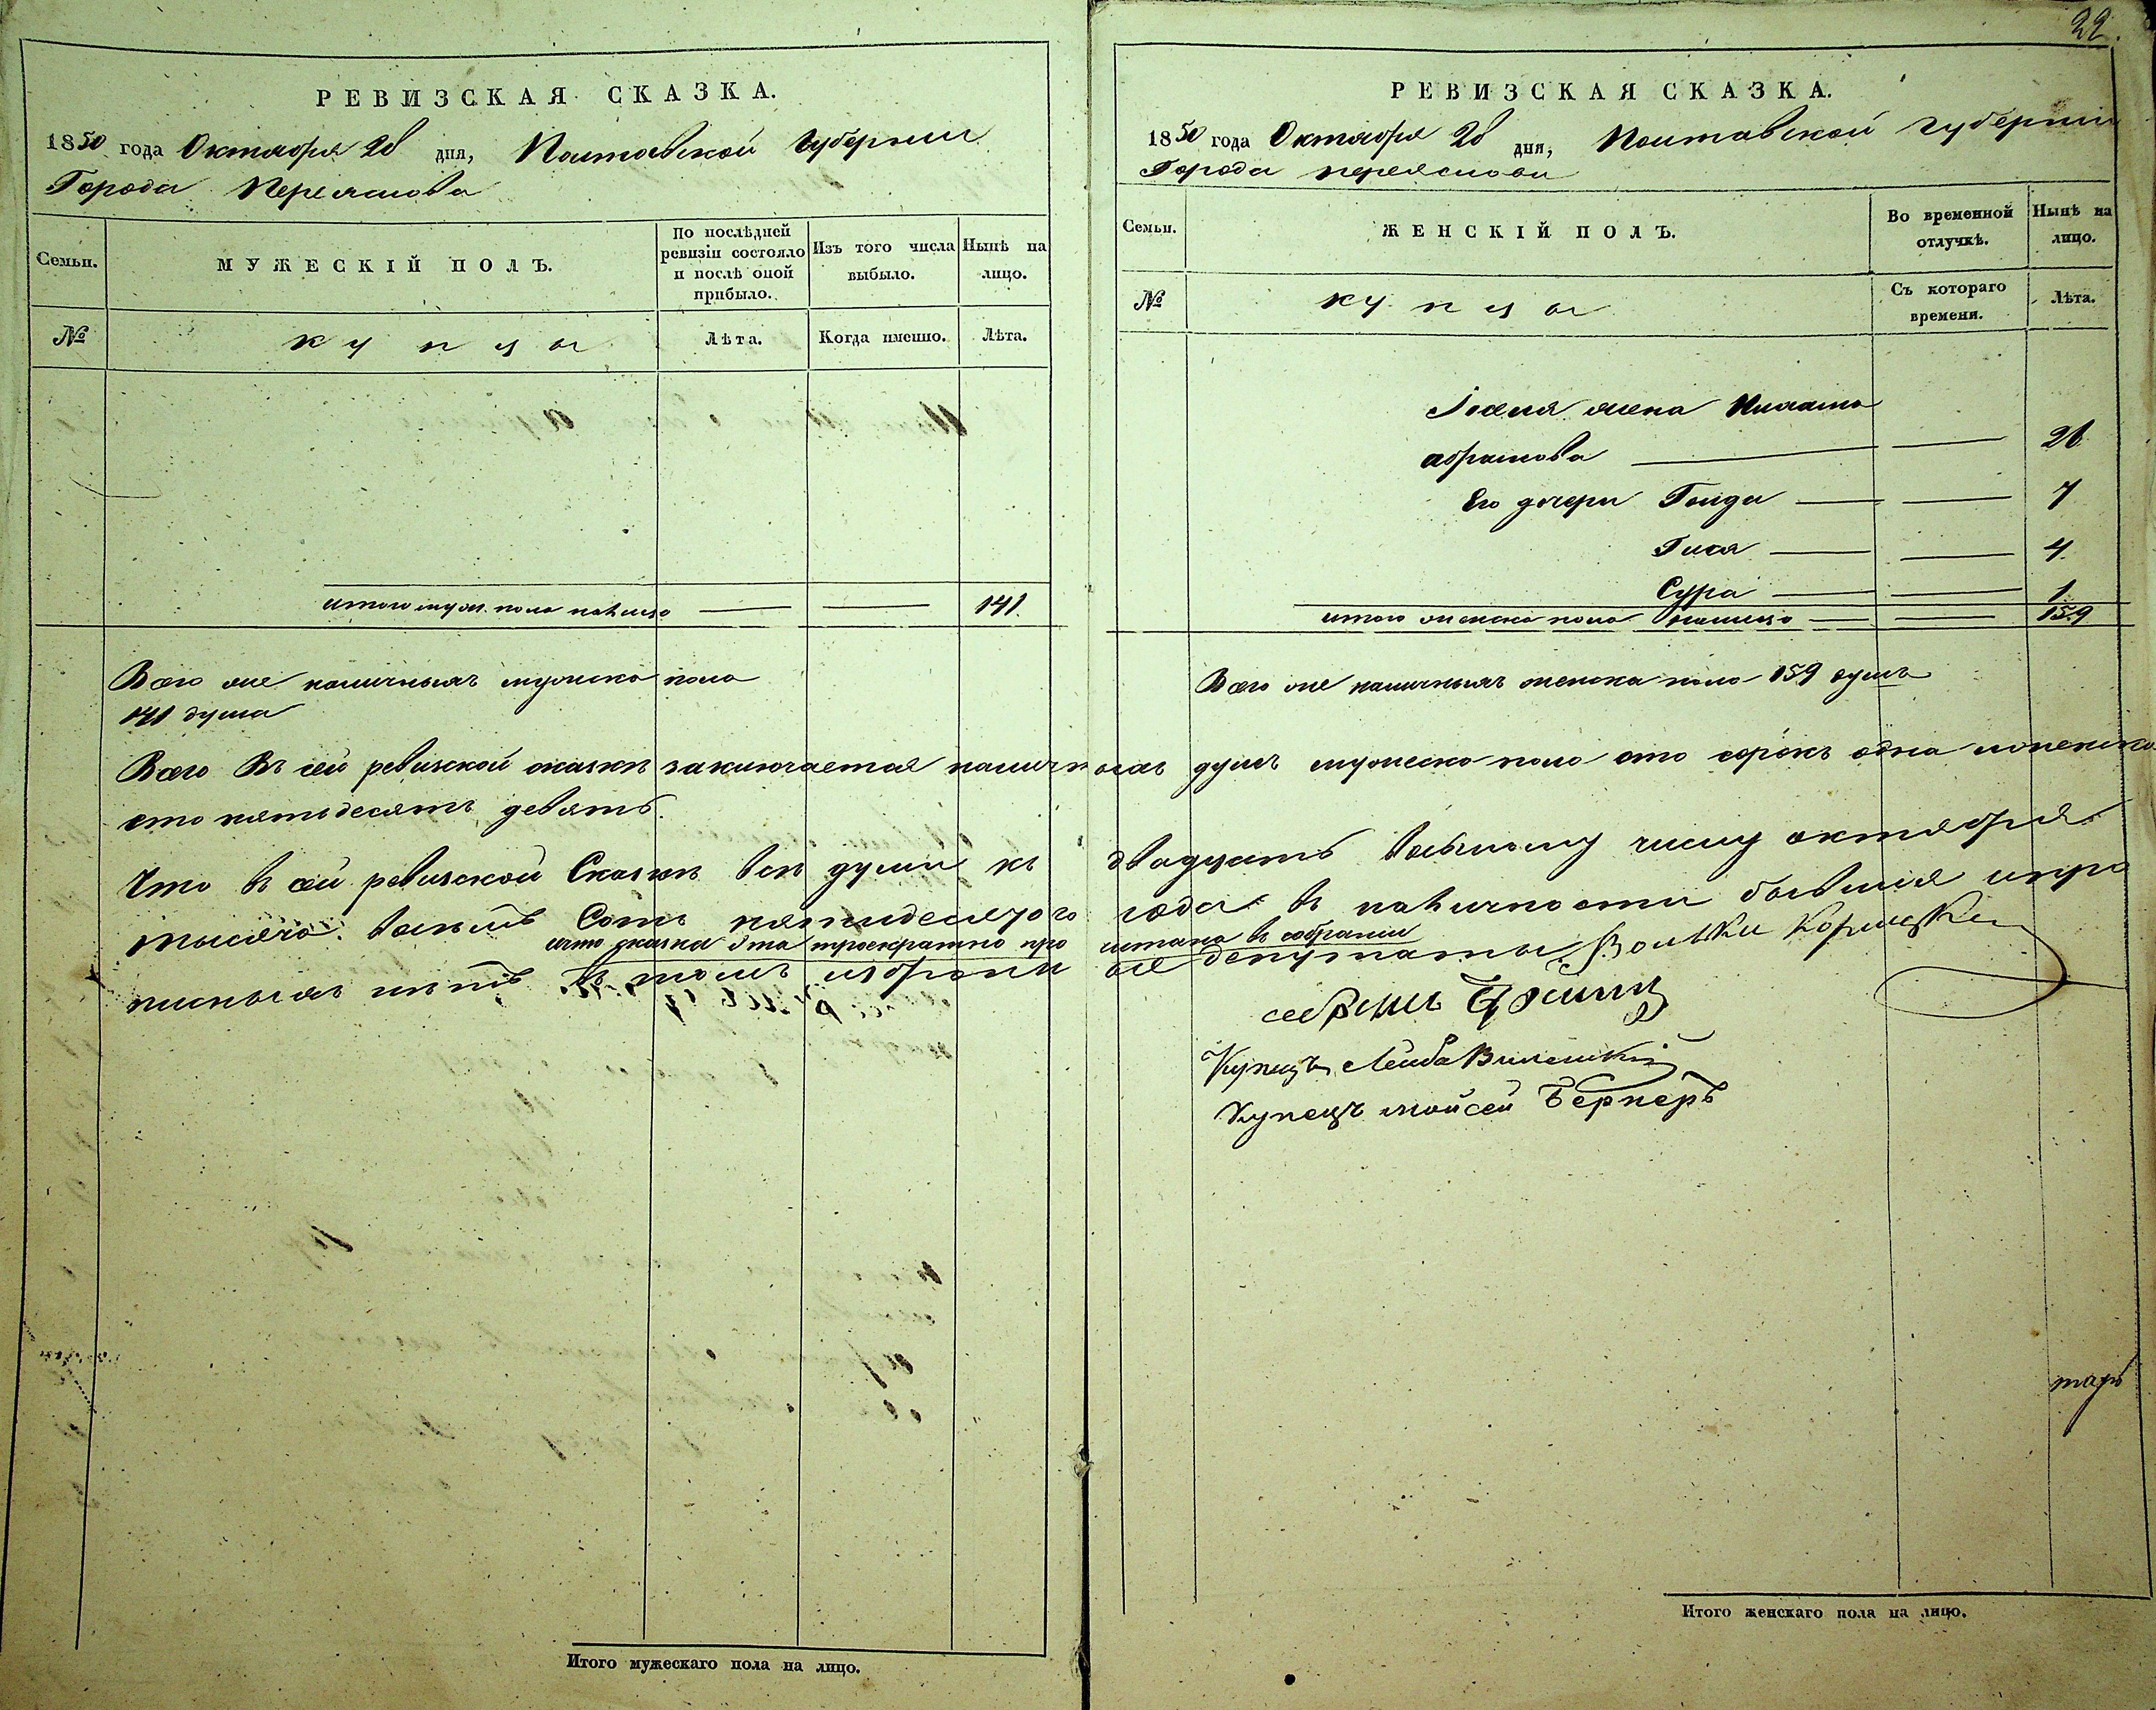 РЕВИЗСКАЯ СКАЗКА.
1850 года Октября 28 дня, Полтавской Губернии
Города Переяслова
Семьи.
МУЖЕСКІЙ ПОЛЪ.
По послѣдней ревизіи состояло и послѣ оной прибыло.
Изъ того числа выбыло.
Нынѣ на лицо.
№
купцы
Лѣта.
Когда именно.
Лѣта.
итого муж. пола налицо 141.
Всего же наличныхъ мужеска пола
141 душа
Итого мужескаго пола на лицо.
22.
РЕВИЗСКАЯ СКАЗКА.
1850 года Октября 28 дня, Полтавской губерніи
Города переяслова
Семьи.
ЖЕНСКІЙ ПОЛЪ.
Во временной отлучкѣ.
Нынѣ на лицо.
№
купцы
Съ котораго времени.
Лѣта.
жена
абрамова 28
Его дочери 7
Гися 4
Сура 1
итого женска пола налицо 159
Всего же наличныхъ женска пола 159 душъ
Всего Въ сей ревизской сказкѣ заключается наличныхъ душъ мужеска пола сто сорокъ одна и женска
сто пятьдесятъ девять.
Что въ сей ревизской Сказкѣ всѣ души къ двадцать восьмому числу октября
тысяча восемь Сотъ пятидесятого года въ наличности бывшия и про
и что сказка эта троекратно про читана в собраніи
писныхъ нѣтъ въ томъ депутаты
Купецъ Лейба Виленскій
Купецъ мойсей Бернеръ
Итого женскаго пола на лицо.